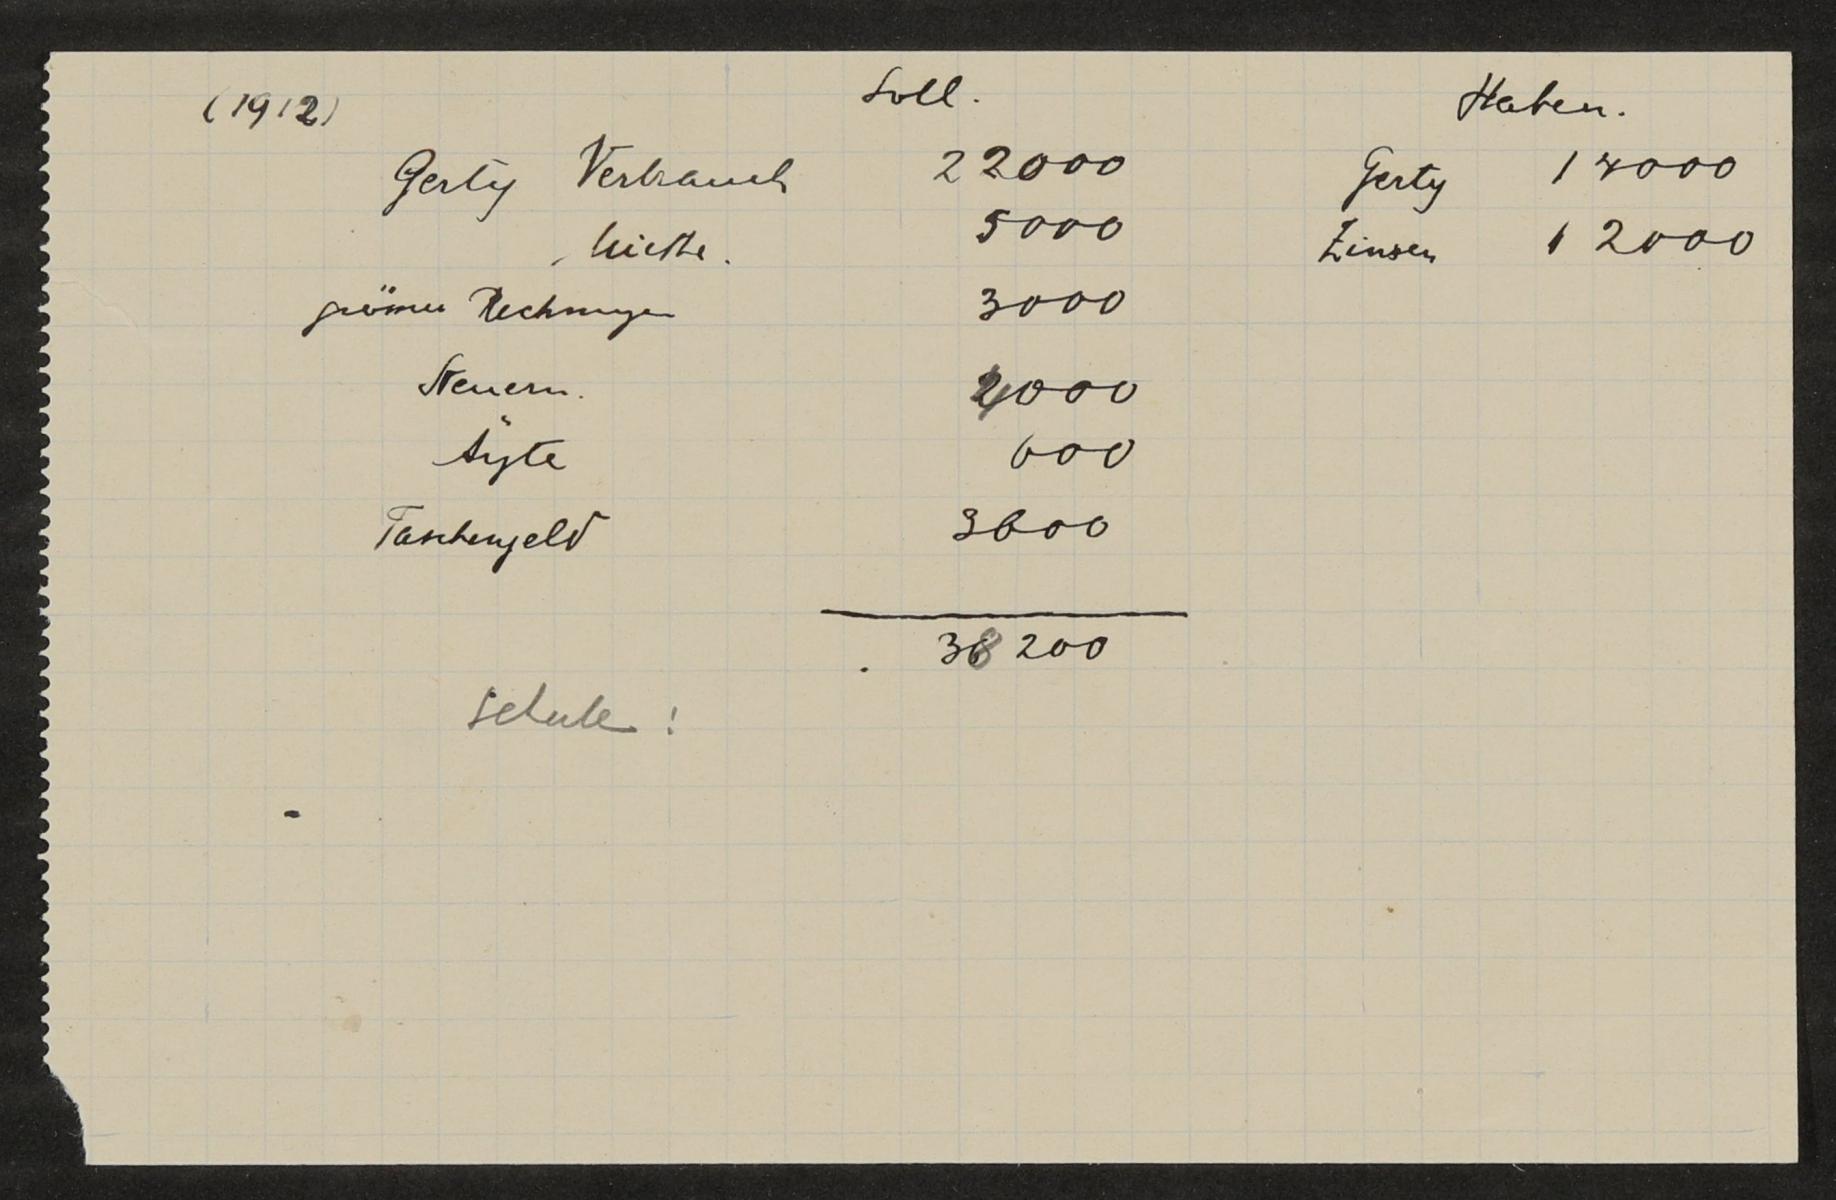 (1912) Soll. Haben.
Gerty Verbrauch 22000 Gerty 14000
Miethe. 5000 Zinsen 12000
größere Rechnungen 3000
Steuern. 4000
Ärzte 600
Taschengeld 3600
38200
Schule !